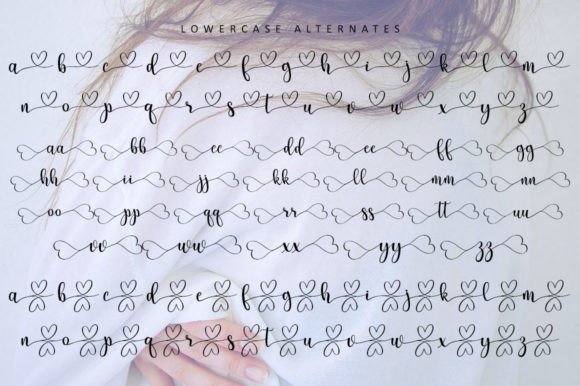 LOWERCASE ALTERNATES
a b c d e f g h i j k l m
n o p q r s t u v w x y z
aa bb cc dd ee ff gg
hh ii jj kk ll mm nn
oo pp qq rr ss tt uu
vv ww xx yy zz
a b c d e f g h i j k l m
n o p q r s t u v w x y z